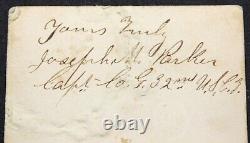 Yours Truly
Joseph H. Parker
Capt. Co. G. 32nd U.S.C.T.
ebay